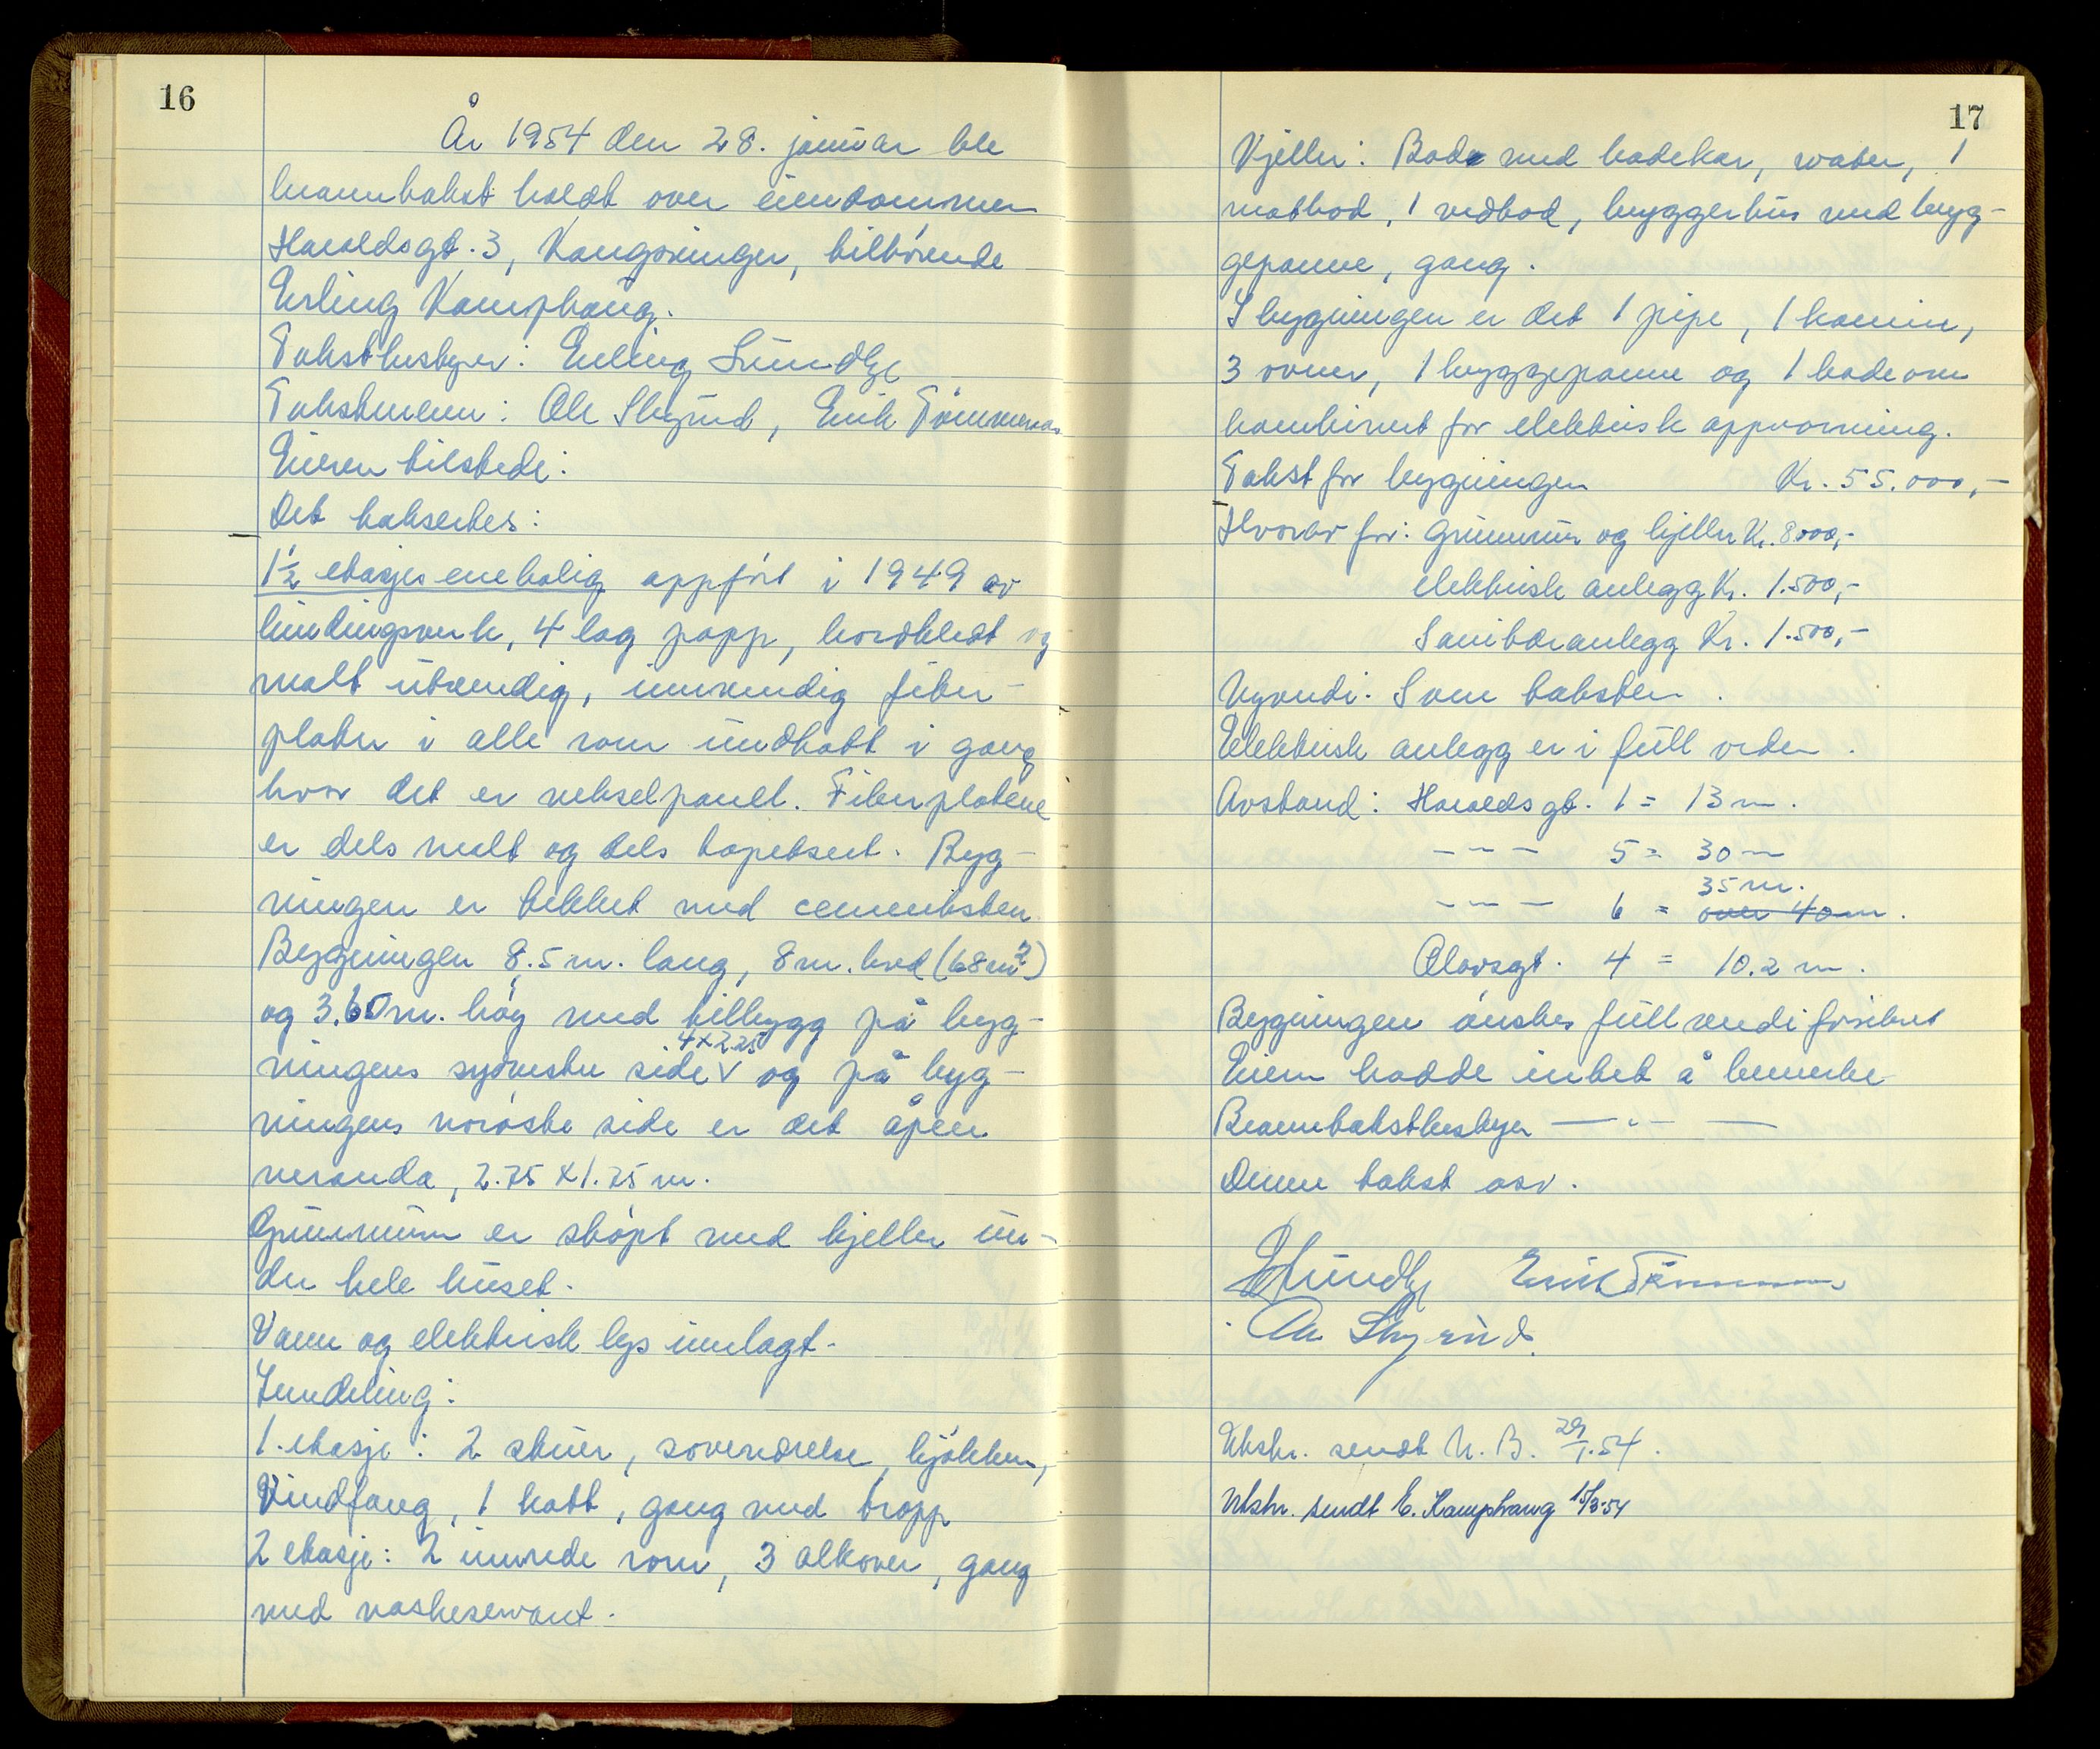 16
År 1954 den 28. januar ble
branntakst holdt over eiendommen
Haraldsgt. 3, Kongsvinger, tilhørende
Erling Kamphaug.
Takstbestyrer: Erling Lundby
Takstmenn: Ole Skyrud, Erik Tømmeraas
Eieren tilstede:
Det takseres:
1½ etasjes enebolig oppført i 1949 av
bindingsverk, 4 lag papp, bordkledt og
malt utvendig, innvendig fiber-
plater i alle rom undtatt i gang
hvor det er vekselpanel. Fiberplatene
er dels malt og dels tapetsert. Byg-
ningen er tekket med cementsten.
Bygningen 8.5 m. lang, 8 m. bred (68 m²)
og 3.60 m. høy med tilbygg på byg-
4 x 2.25
ningens sydvestre side V og på byg-
ningens norøste side er det åpen
veranda, 2.75 x 1.75 m.
Grunnmur er støpt med kjeller un-
der hele huset.
Vann og elektrisk lys innlagt.
Inndeling:
1. etasje: 2 stuer, soveværelse, kjøkken,
Vindfang, 1 kott, gang med tropp
2 etasje: 2 innrede rom, 3 alkover, gang
med vaskeservant.
17
Kjeller: Bad med badekar, vater, 1
matbod, 1 vedbod, bryggerhus med bryg-
gepanne, gang.
I bygningen er det 1 pipe, 1 kamin,
3 ovner, 1 bryggepanne og 1 badeovn
kombinert for elektrisk oppvarming.
Takst for bygningen Kr. 55.000,-
Hvorav for: Grunnmur og kjeller Kr. 8000,-
elektrisk anlegg Kr. 1.500,-
Sanitæranlegg Kr. 1.500,-
Nyverdi. Som taksten.
Elektrisk anlegg er i full orden.
Avstand: Haraldsgt. 1 = 13 m.
– " – 5 = 30 m
35 m.
– " – 6 = over 40 m.
Olavsgt. 4 = 10.2 m.
Bygningen ønskes fullverdiforsikret
Eieren hadde intet å bemerke
Branntakstbestyrer — " —
Denne takst osv.
E Lundby Erik Tømmeraas
Ole Skyrud.
Utskr. sendt N. B. 29/1.54.
Utskr. sendt E. Kamphaug 15/3-54